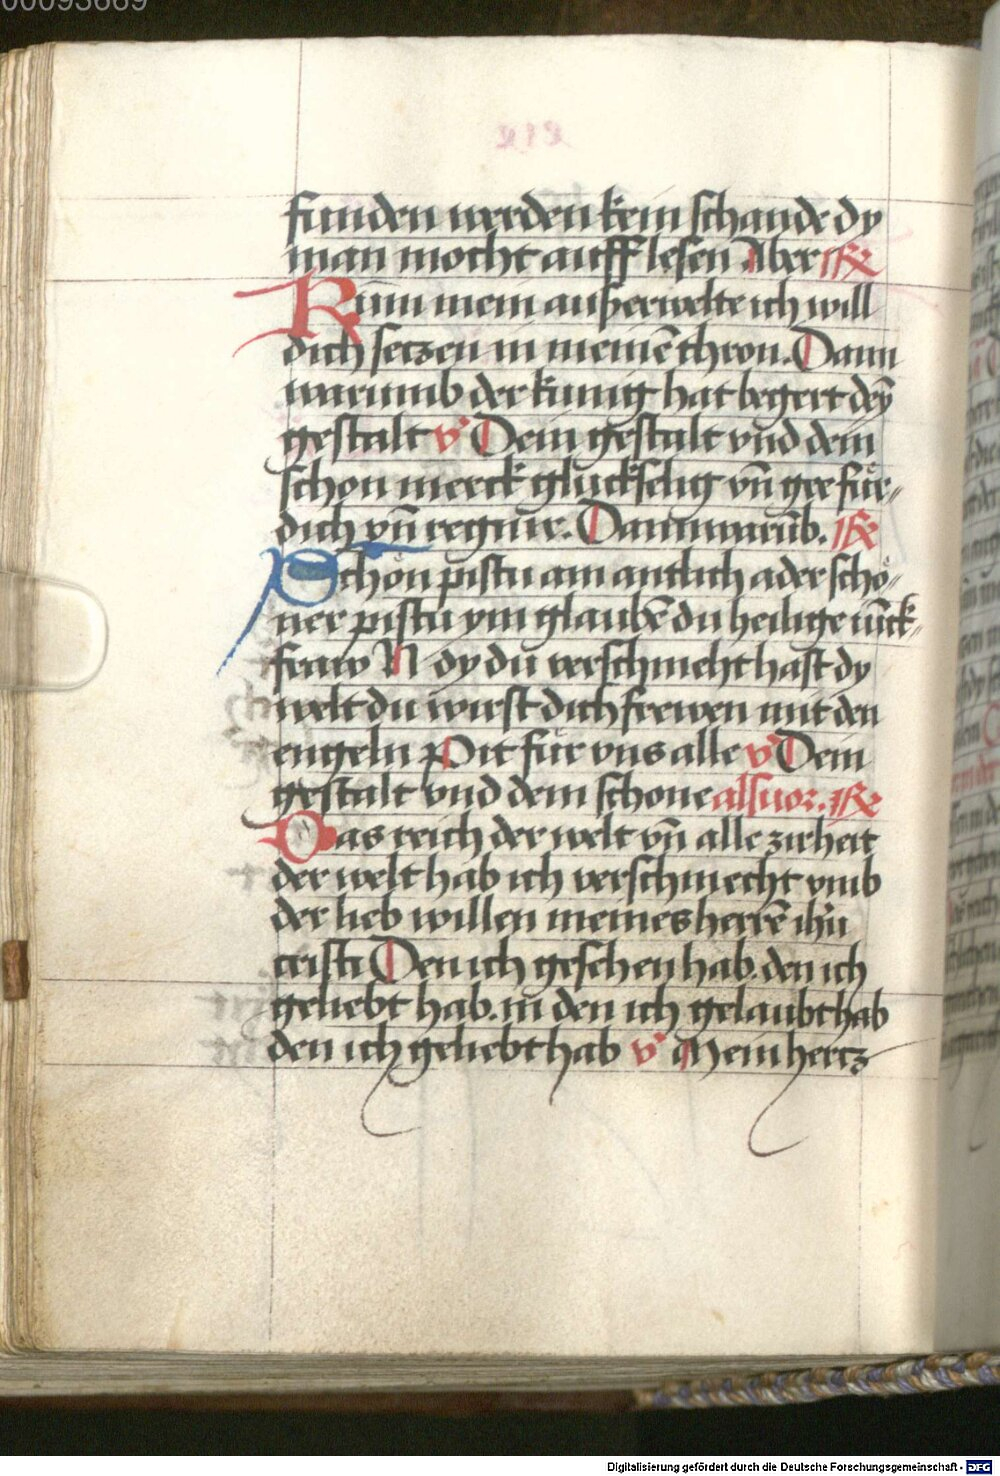 00093669
funden werden kein schande dy
man mocht auff lesen Aber ℟
Kum mein außerwelte ich will
dich seczen in meinē thron. Dann
warumb der kunig hat begert deȳ
gestalt v̓ Dein gestalt vnd dein
schon merck gluckselig vn̄ gee fůr-
dich vn̄ regnir. Dann warūb. ℟
Schon pistu am antlich ader schö-
ner pistu ym glaubē du heilige iūck-
fraw N dy du verschmeht hast dy
welt du wirst dich frewen mit den
engeln Pit für vns alle v̓ Dein
gestalt vnd dein schone als uor. ℟
Das reich der welt vn̄ alle zirheit
der welt hab ich verschmecht vmb
der lieb willen meines herrē ihū
cristi Den ich gesehen hab. den ich
geliebt hab. in den ich gelaubt hab
den ich geliebt hab v̓ Mein hertz
Digitalisierung gefördert durch die Deutsche Forschungsgemeinschaft - DFG